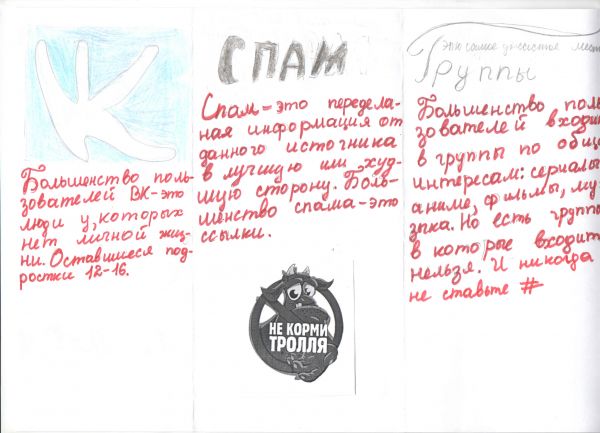 Большенство поль-
зователей ВК-это
люди у, которых
нет личной жиз-
ни. Оставшиеся под-
ростки 12-16.
СПАМ
Спам-это передела-
ная информация от
данного источника
в лучшую или худ-
шую сторону. Боль-
шенство спама-это
ссылки.
НЕ КОРМИ
ТРОЛЛЯ
Это самое ужасное мест
Группы
Большенство поль
зователей входи
в группы по общи
интересам: сериалы
аниме, фильмы, му
зыка. Но есть группы
в которые входить
нельзя. И никогда
не ставьте #